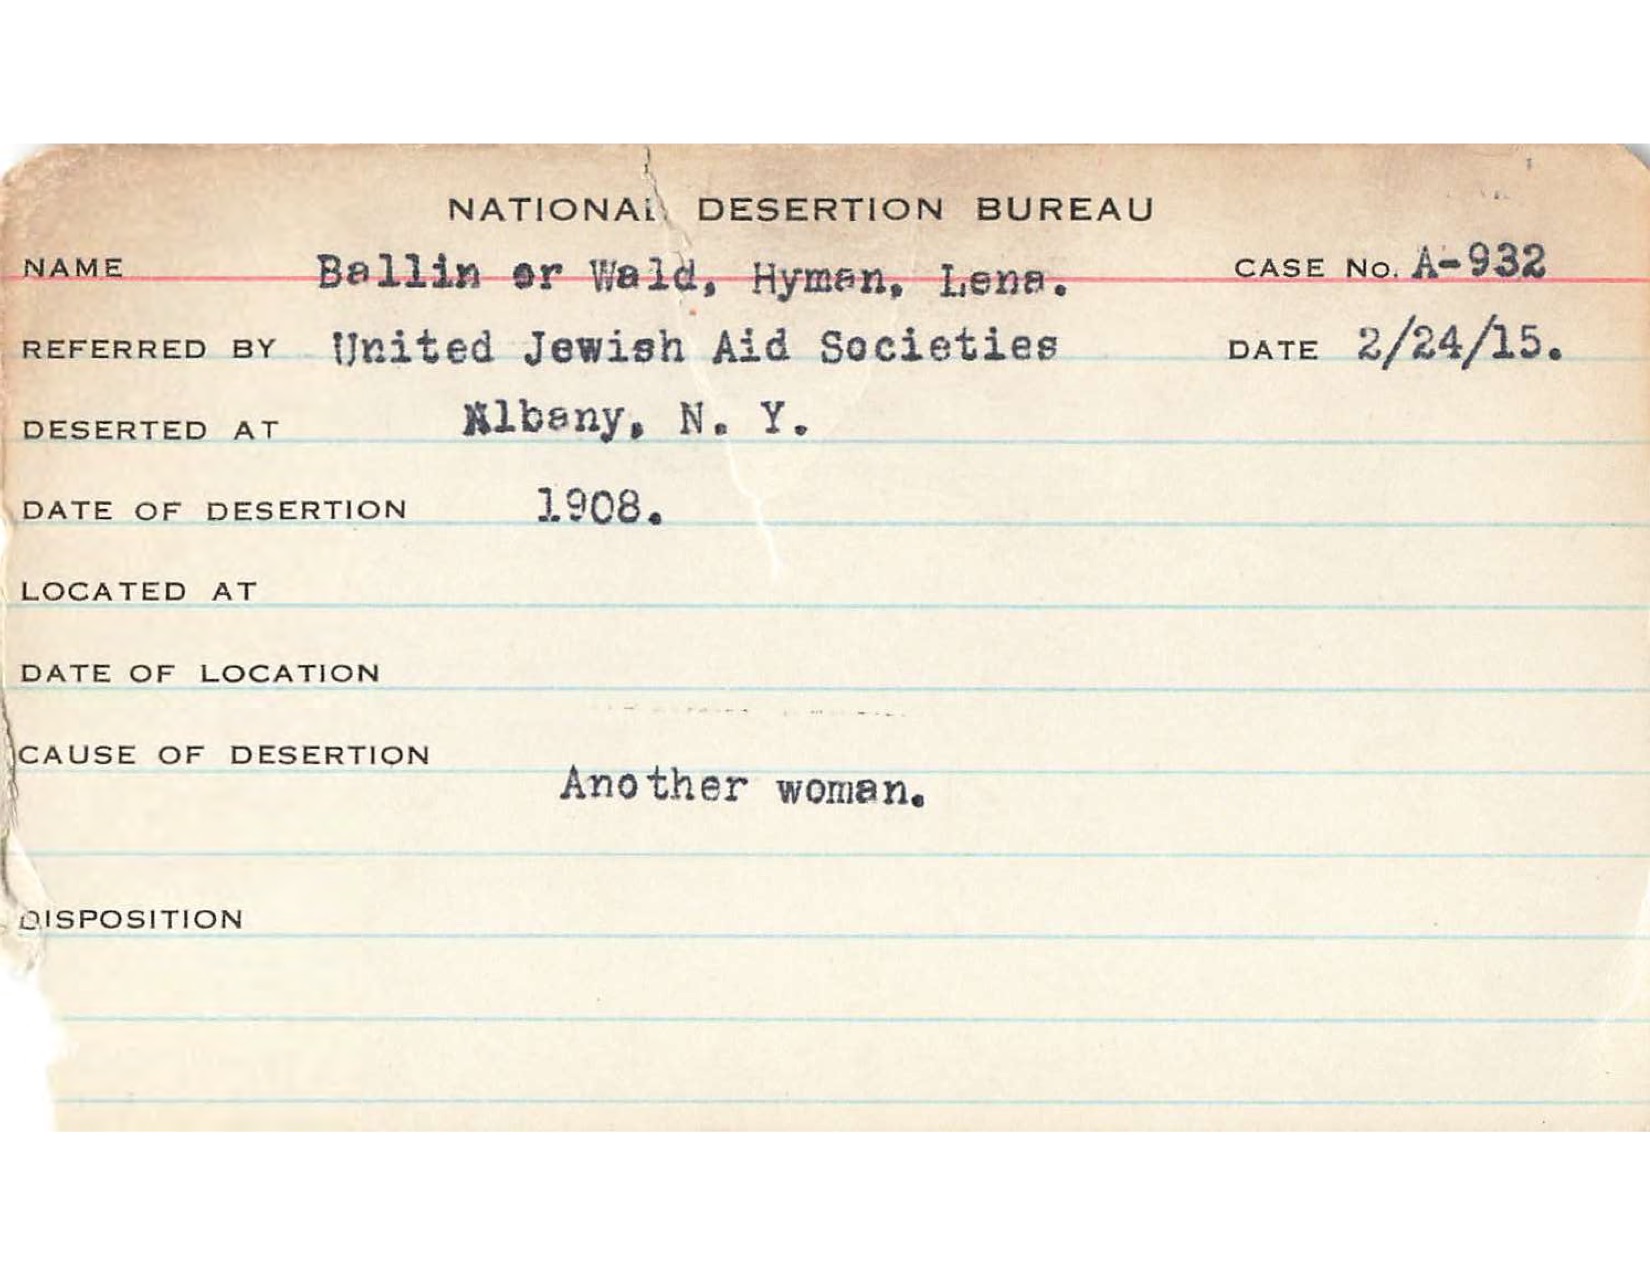 NATIONAL DESERTION BUREAU
NAME Ballin or Wald, Hyman, Lena. CASE No. A-932
REFERRED BY United Jewish Aid Societies DATE 2/24/15.
DESERTED AT Albany, N. Y.
DATE OF DESERTION 1908.
LOCATED AT
DATE OF LOCATION
CAUSE OF DESERTION
Another woman.
DISPOSITION